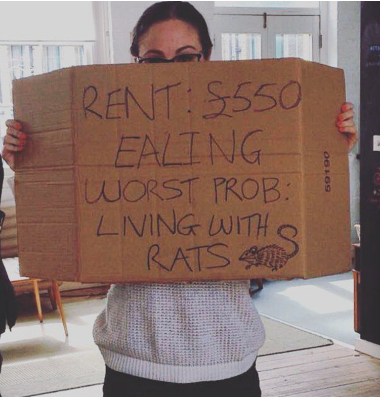 RENT: £550
EALING
WORST PROB:
LIVING WITH
RATS
59190